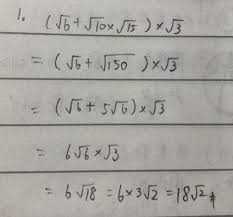 1. (√6 + √10 × √15) × √3
= (√6 + √150) × √3
= (√6 + 5√6) × √3
= 6√6 × √3
= 6√18 = 6 × 3√2 = 18√2 #